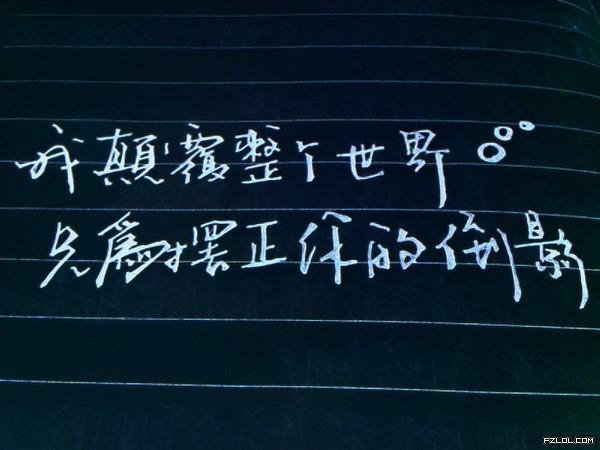 我顛覆整个世界。。。
只為擺正你的倒影
FZLOL.COM